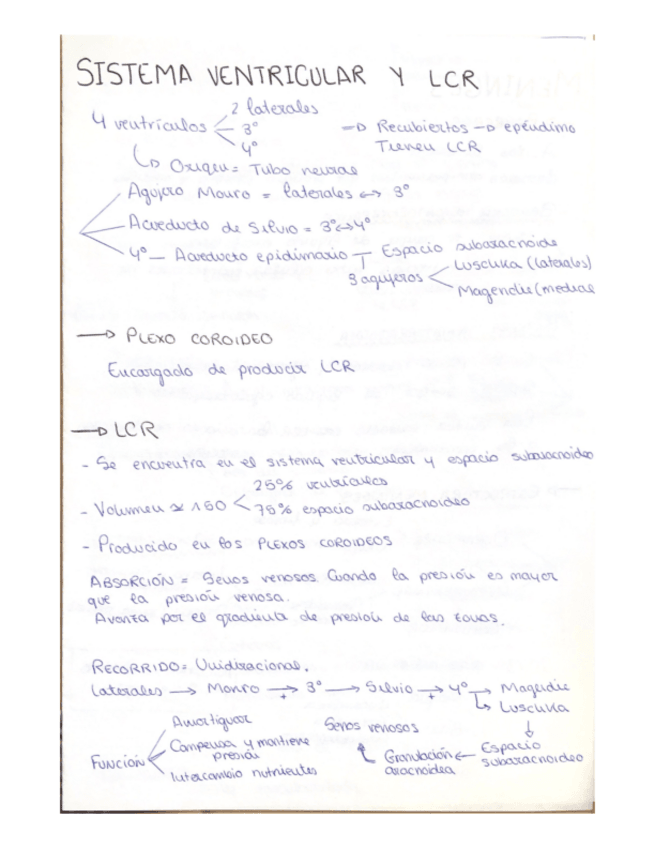 SISTEMA VENTRICULAR Y LCR
4 ventrículos 2 laterales
3º
4º
→ Recubiertos → epéndimo
Tienen LCR
↳ Origen = Tubo neural
Agujero Monro = laterales ↔ 3º
Acueducto de Silvio = 3º↔4º
4º — Acueducto epidimario — Espacio subaracnoide
3 agujeros Luschka (laterales)
Magendie (medial
→ PLEXO COROIDEO
Encargado de producir LCR
→ LCR
- Se encuentra en el sistema ventricular y espacio subaracnoideo
- Volumen ≃ 150 25% ventrículos
75% espacio subaracnoideo
- Producido en los PLEXOS COROIDEOS
ABSORCIÓN = Senos venosos Cuando la presión es mayor
que la presión venosa.
Avanza por el gradiente de presión de las zonas.
RECORRIDO = Unidiracional.
Laterales → Monro → 3º → Silvio → 4º → Magendie
↳ Luschka
↓
Espacio
subaracnoideo
← Granulación
aracnoidea
Senos venosos
Función Amortiguar
Compensa y mantiene
presión
Intercambio nutrientes